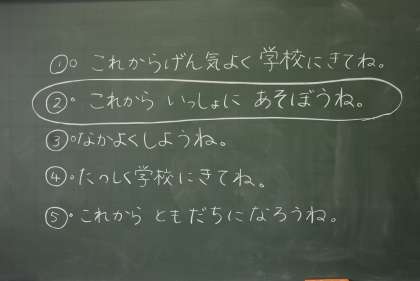 ①。これからげん気よく学校にきてね。
②。これから いっしょに あそぼうね。
③。なかよくしようね。
④。たっしく学校にきてね。
⑤。これから ともだちになろうね。